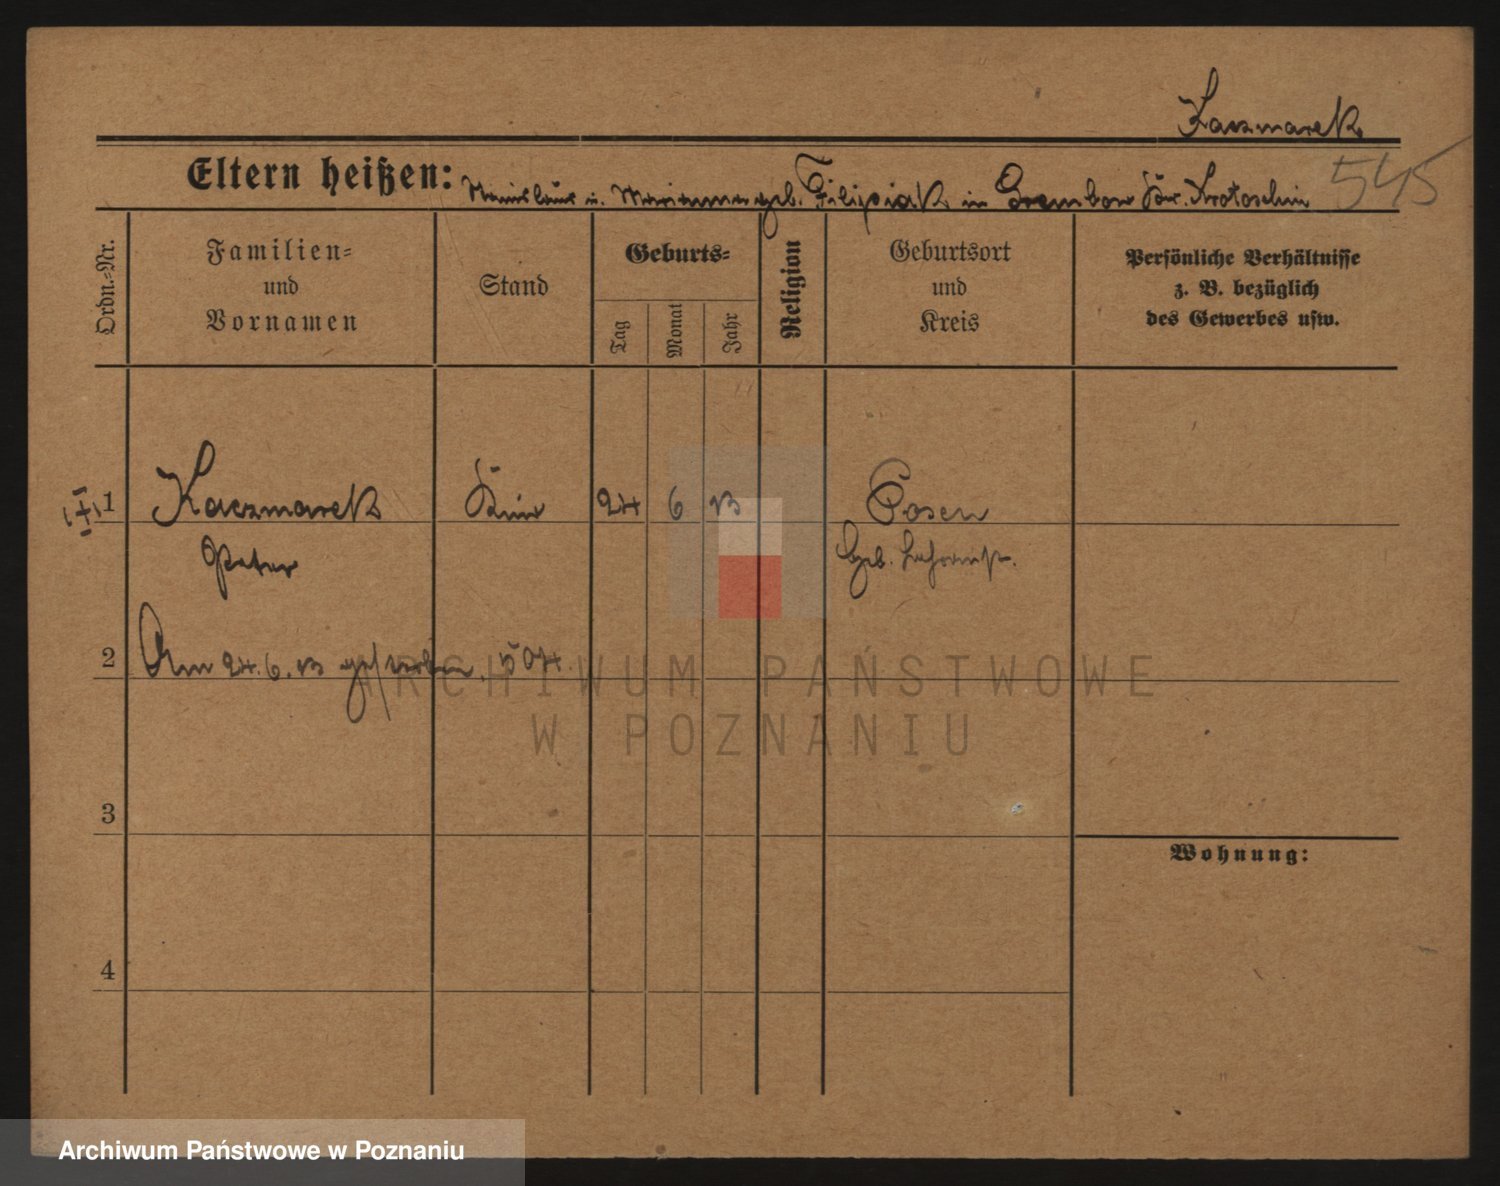 Kaczmarek
Eltern heißen: u. Marianna geb. Filipiak in Grembow Kr. Krotoschin 545
Ordn.-Nr.
Familien-
und
Vornamen
Stand
Geburts-
Tag
Monat
Jahr
Religion
Geburtsort
und
Kreis
Persönliche Verhältnisse
z. B. bezüglich
des Gewerbes usw.
1 Kaczmarek 24 6 13 Posen
Peter Geb.
2 Am 24.6.13 gestorben.
3
4
Wohnung:
ARCHIWUM PAŃSTWOWE
W POZNANIU
Archiwum Państwowe w Poznaniu